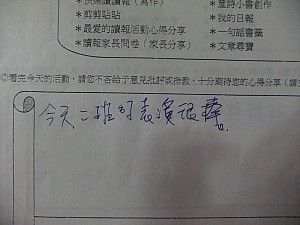 *快樂讀讀報（寫作） *童詩小書創作
*剪剪貼貼 *我的日報
*最愛的讀報活動心得分享 *一句話書籤
*讀報家長問卷（家長分享） *文章尋寶
◎看完今天的活動，請您不吝給予意見批評或指教，十分期待您的心得分享（請
今天二班的表演很棒。